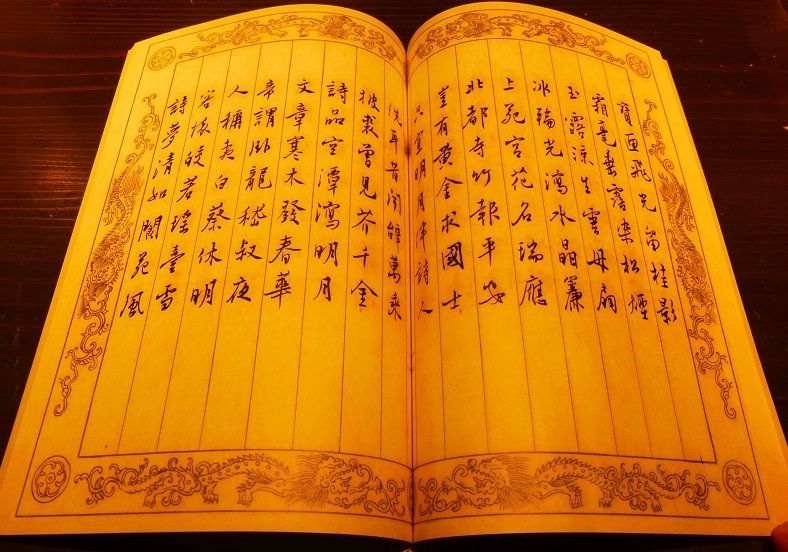 寶匣飛光留桂影
霜毫垂露染松煙
玉露涼生雲母扇
冰輪光瀉水晶簾
上苑宮花名瑞應
北都寺竹報平安
豈有黃金求國士
只 明月伴詩人
洗耳昔聞辭萬乘
披裘曾見芥千金
詩品空潭瀉明月
文章寒木發春華
帝謂卧龍嵇叔夜
人稱夷白蔡休明
容 皎若瑤臺雪
詩夢清如閬苑風